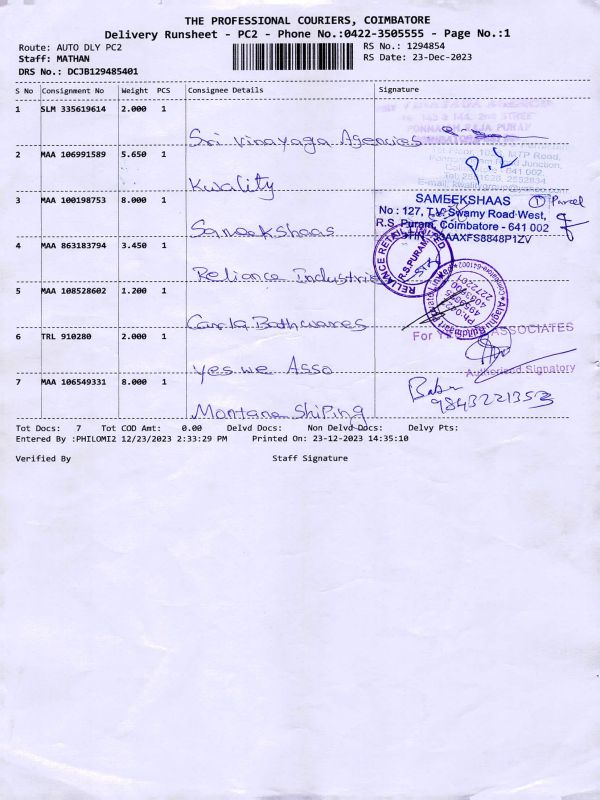 THE PROFESSIONAL COURIERS, COIMBATORE
Delivery Runsheet - PC2 - Phone No.:0422-3505555 - Page No.:1
Route: AUTO DLY PC2
RS No.: 1294854
Staff: MATHAN
RS Date: 23-Dec-2023
DRS No.: DCJB129485401
S No Consignment No Weight PCS Consignee Details Signature
1 SLM 335619614 2.000 1
Sri Vinayaga Agencies
2 MAA 106991589 5.650 1
Kwality
3 MAA 100198753 8.000 1
SAMEEKSHAAS
① Parcel
No : 127, T.V. Swamy Road West,
R.S. Puram, Coimbatore - 641 002
Sameekshaas
4 MAA 863183794 3.450 1
RELIANCE RETAIL LIMITED
R.S.PURAM
Reliance Industries
5 MAA 108528602 1.200 1
Carla Bathwares
6 TRL 910280 2.000 1
For YES WE ASSOCIATES
Authorised Signatory
Yes we Asso
7 MAA 106549331 8.000 1
Babu
9843221353
Montana Shiping
Tot Docs: 7 Tot COD Amt: 0.00 Delvd Docs: Non Delvd Docs: Delvy Pts:
Entered By :PHILOMI2 12/23/2023 2:33:29 PM Printed On: 23-12-2023 14:35:10
Verified By Staff Signature